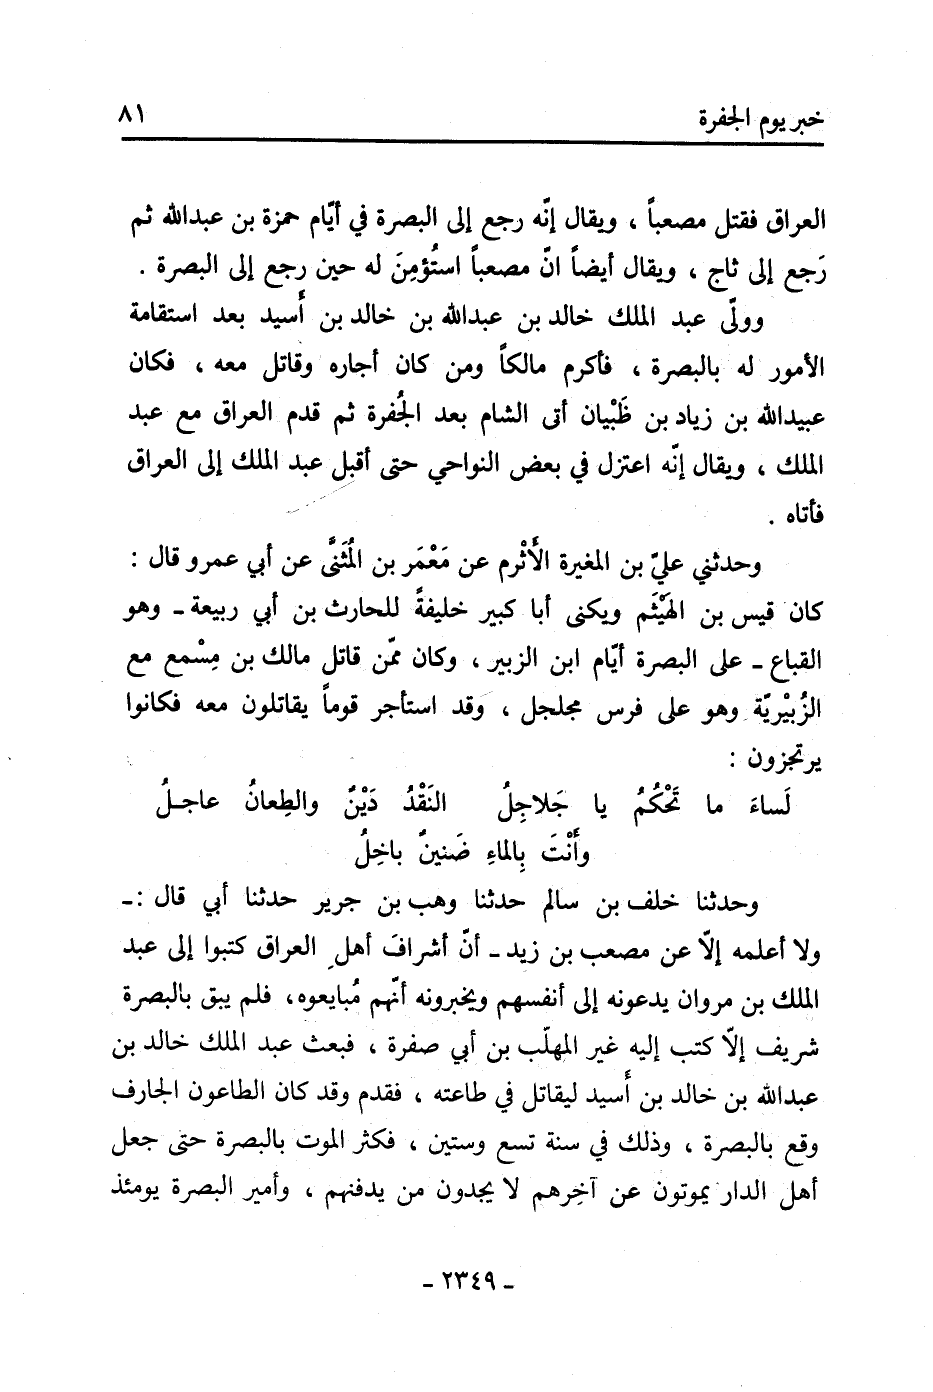 خبر يوم الجفرة ٨١
العراق فقتل مصعباً ، ويقال إنّه رجع إلى البصرة في أيّام حمزة بن عبدالله ثم
رَجع إلى ثاج ، ويقال أيضاً انّ مصعباً استُؤمِنَ له حين رجع إلى البصرة .
وولّى عبد الملك خالد بن عبدالله بن خالد بن أُسيد بعد استقامة
الأمور له بالبصرة ، فأكرم مالكاً ومن كان أجاره وقاتل معه ، فكان
عبيدالله بن زياد بن ظَبْيان أتى الشام بعد الجُفرة ثم قدم العراق مع عبد
الملك ، ويقال إنّه اعتزل في بعض النواحي حتى أقبل عبد الملك إلى العراق
فأتاه .
وحدثني عليّ بن المغيرة الأَثْرم عن مَعْمَر بن المُثَنَّى عن أبي عمرو قال :
كان قيس بن الهَيْثَم ويكنى أبا كبير خليفةً للحارث بن أبي ربيعة ـ وهو
القباع ـ على البصرة أيّام ابن الزبير ، وكان ممّن قاتل مالك بن مِسْمع مع
الزُبَيْريّة وهو على فرس مجلجل ، وقد استأجر قوماً يقاتلون معه فكانوا
يرتجزون :
لَساءَ ما تَحْكُمُ يا جَلاجِلُ النَقْدُ دَيْنٌ والطِعانُ عاجلُ
وأَنْتَ بِالماءِ ضَنينٌ باخِلُ
وحدثنا خلف بن سالم حدثنا وهب بن جرير حدثنا أبي قال :ـ
ولا أعلمه إلّا عن مصعب بن زيد ـ أنّ أشرافَ أهلِ العراق كتبوا إلى عبد
الملك بن مروان يدعونه إلى أنفسهم ويخبرونه أنّهم مُبايعوه، فلم يبق بالبصرة
شريف إلّا كتب إليه غير المهلّب بن أبي صفرة ، فبعث عبد الملك خالد بن
عبدالله بن خالد بن أُسيد ليقاتل في طاعته ، فقدم وقد كان الطاعون الجارف
وقع بالبصرة ، وذلك في سنة تسع وستين ، فكثر الموت بالبصرة حتى جعل
أهل الدار يموتون عن آخِرهم لا يجدون من يدفنهم ، وأمير البصرة يومئذ
ـ ٢٣٤٩ ـ